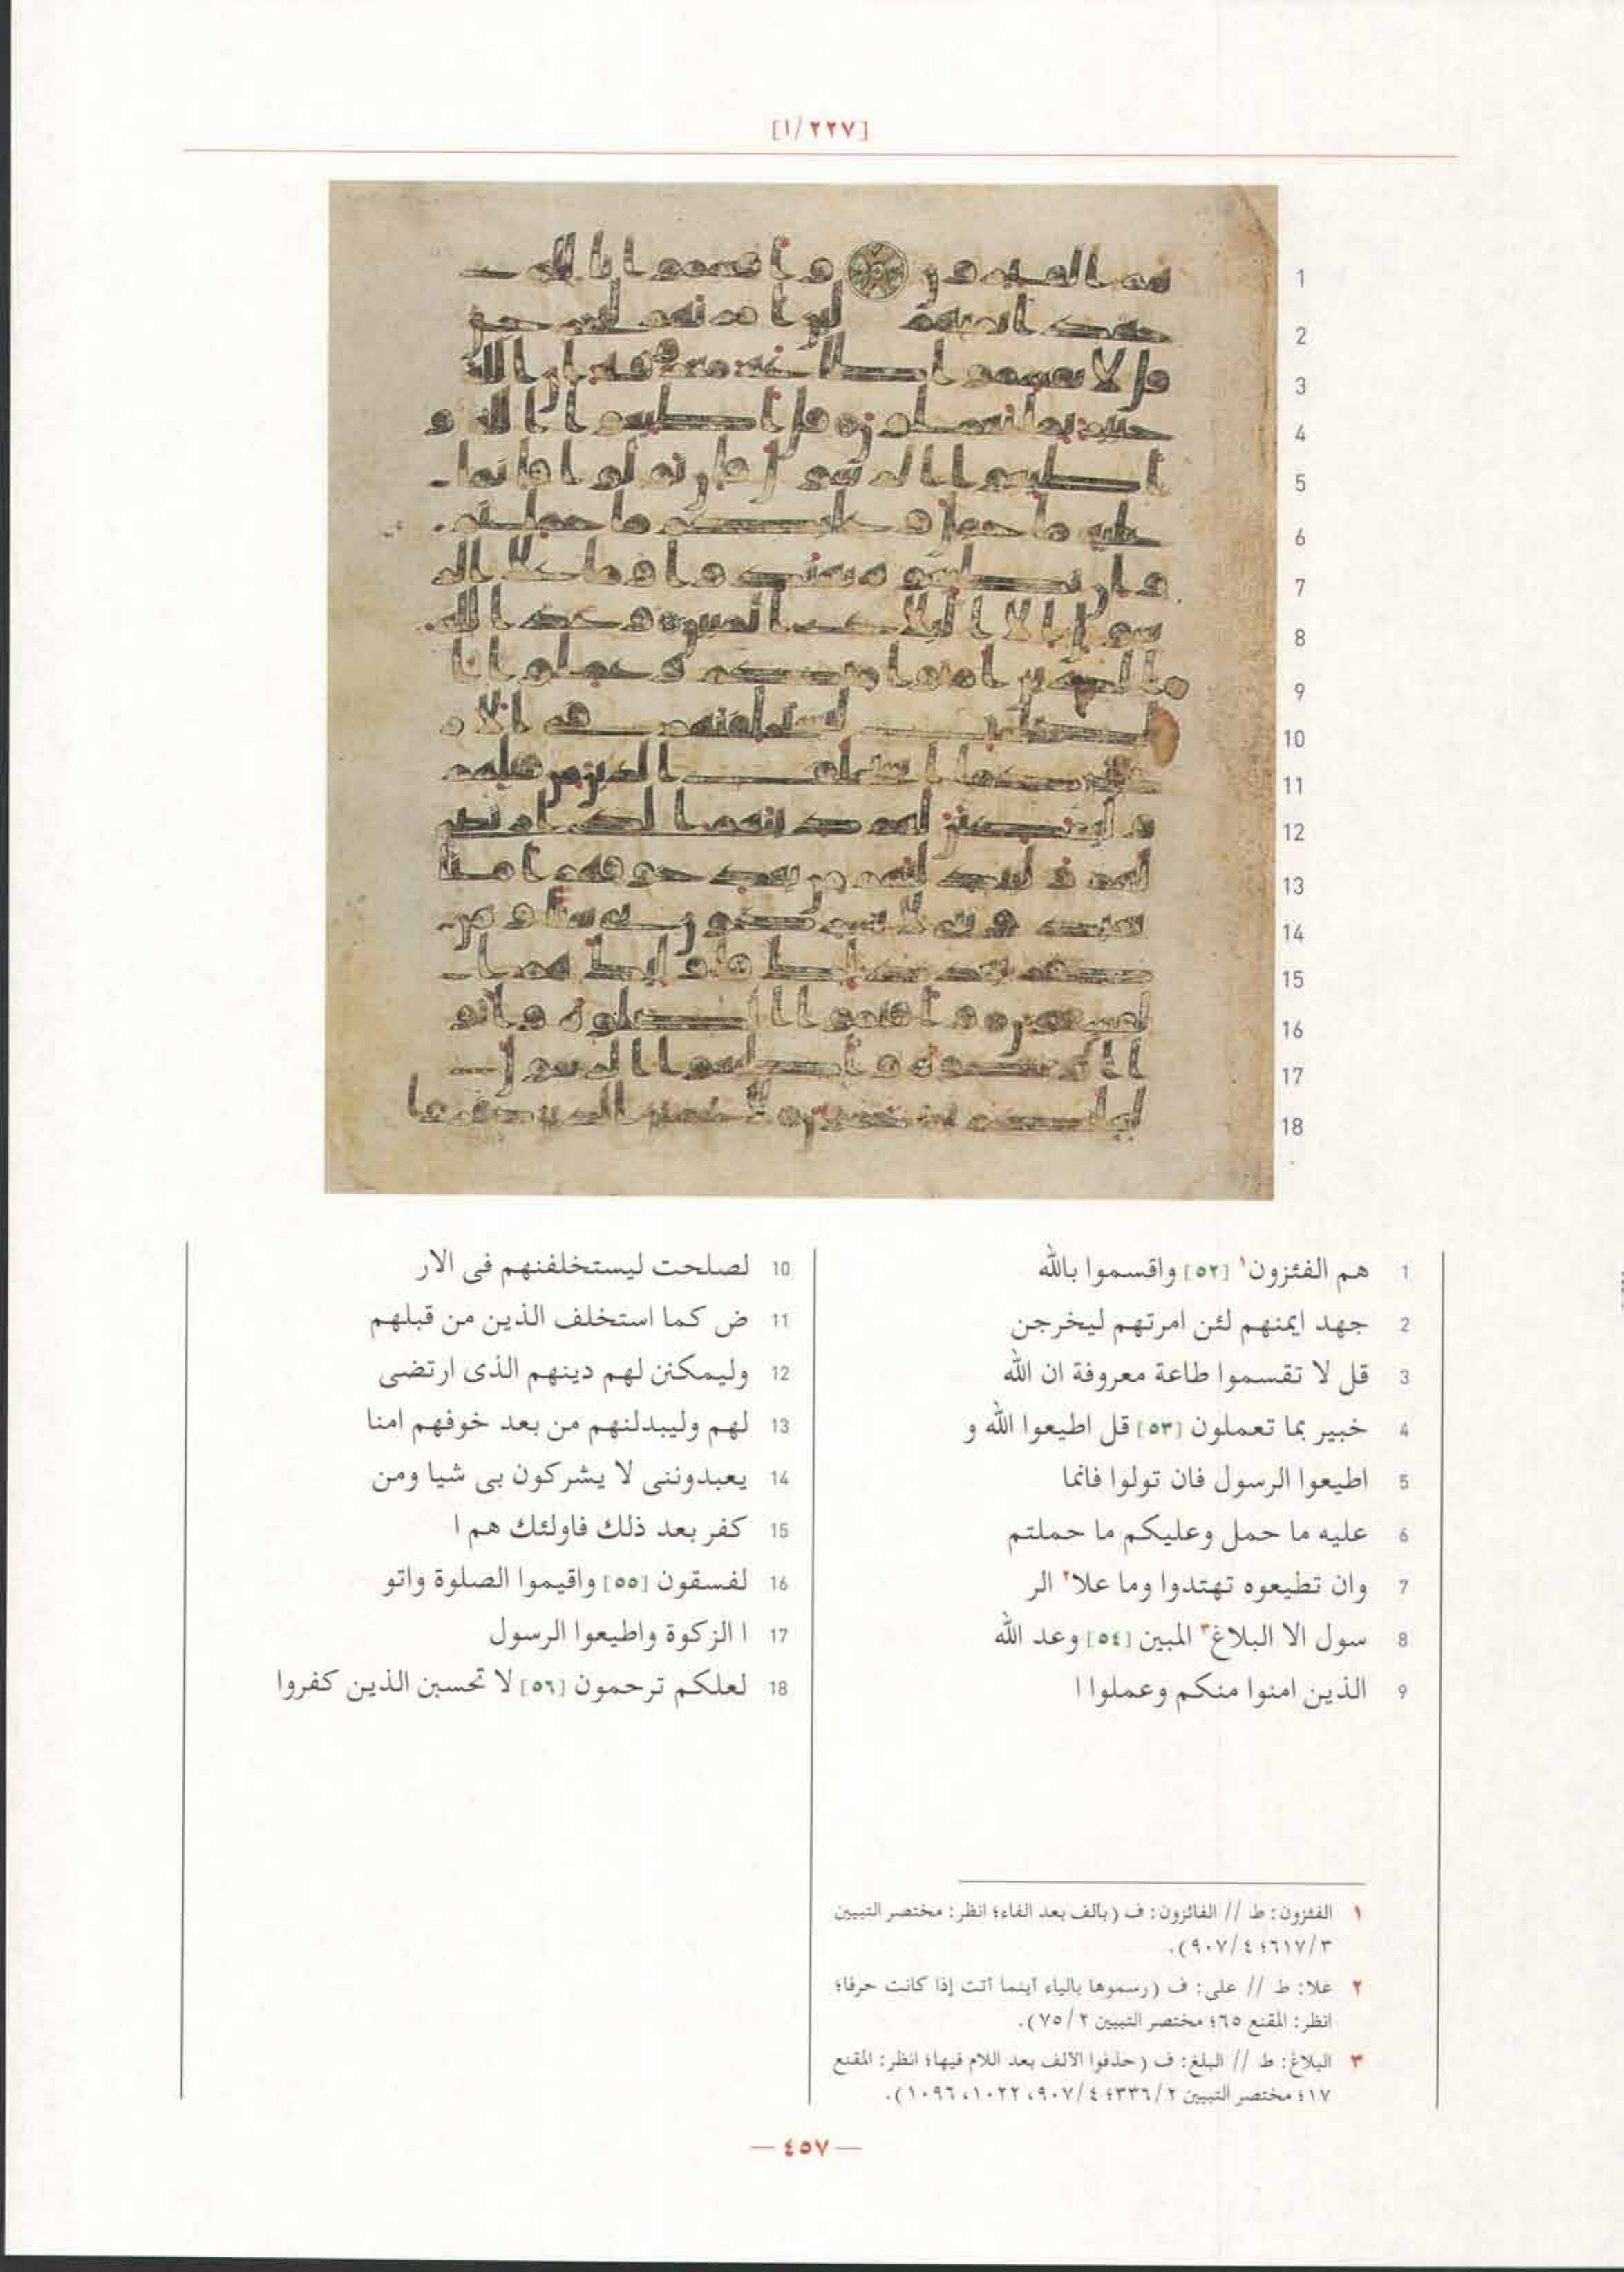 [١/٢٢٧]
1 هم الفئزون١ [٥٢] واقسموا بالله
2 جهد ايمنهم لئن امرتهم ليخرجن
3 قل لا تقسموا طاعة معروفة ان الله
4 خبير بما تعملون [٥٣] قل اطيعوا الله و
5 اطيعوا الرسول فان تولوا فانما
6 عليه ما حمل وعليكم ما حملتم
7 وان تطيعوه تهتدوا وما علا٢ الر
8 سول الا البلاغ٣ المبين [٥٤] وعد الله
9 الذين امنوا منكم وعملوا ا
10 لصلحت ليستخلفنهم فى الار
11 ض كما استخلف الذين من قبلهم
12 وليمكنن لهم دينهم الذى ارتضى
13 لهم وليبدلنهم من بعد خوفهم امنا
14 يعبدوننى لا يشركون بى شيا ومن
15 كفر بعد ذلك فاولئك هم ا
16 لفسقون [٥٥] واقيموا الصلوة واتو
17 ا الزكوة واطيعوا الرسول
18 لعلكم ترحمون [٥٦] لا تحسبن الذين كفروا
١ الفئزون: ط // الفائزون: ف (بالف بعد الفاء؛ انظر: مختصر التبيين
٣/٦١٧؛ ٤/٩٠٧).
٢ علا: ط // على: ف (رسموها بالياء أينما أتت إذا كانت حرفا؛
انظر: المقنع ٦٥؛ مختصر التبيين ٢/٧٥).
٣ البلاغ: ط // البلغ: ف (حذفوا الألف بعد اللام فيها؛ انظر: المقنع
١٧؛ مختصر التبيين ٢/٣٣٦؛ ٤/٩٠٧، ١٠٢٢، ١٠٩٦).
— ٤٥٧ —